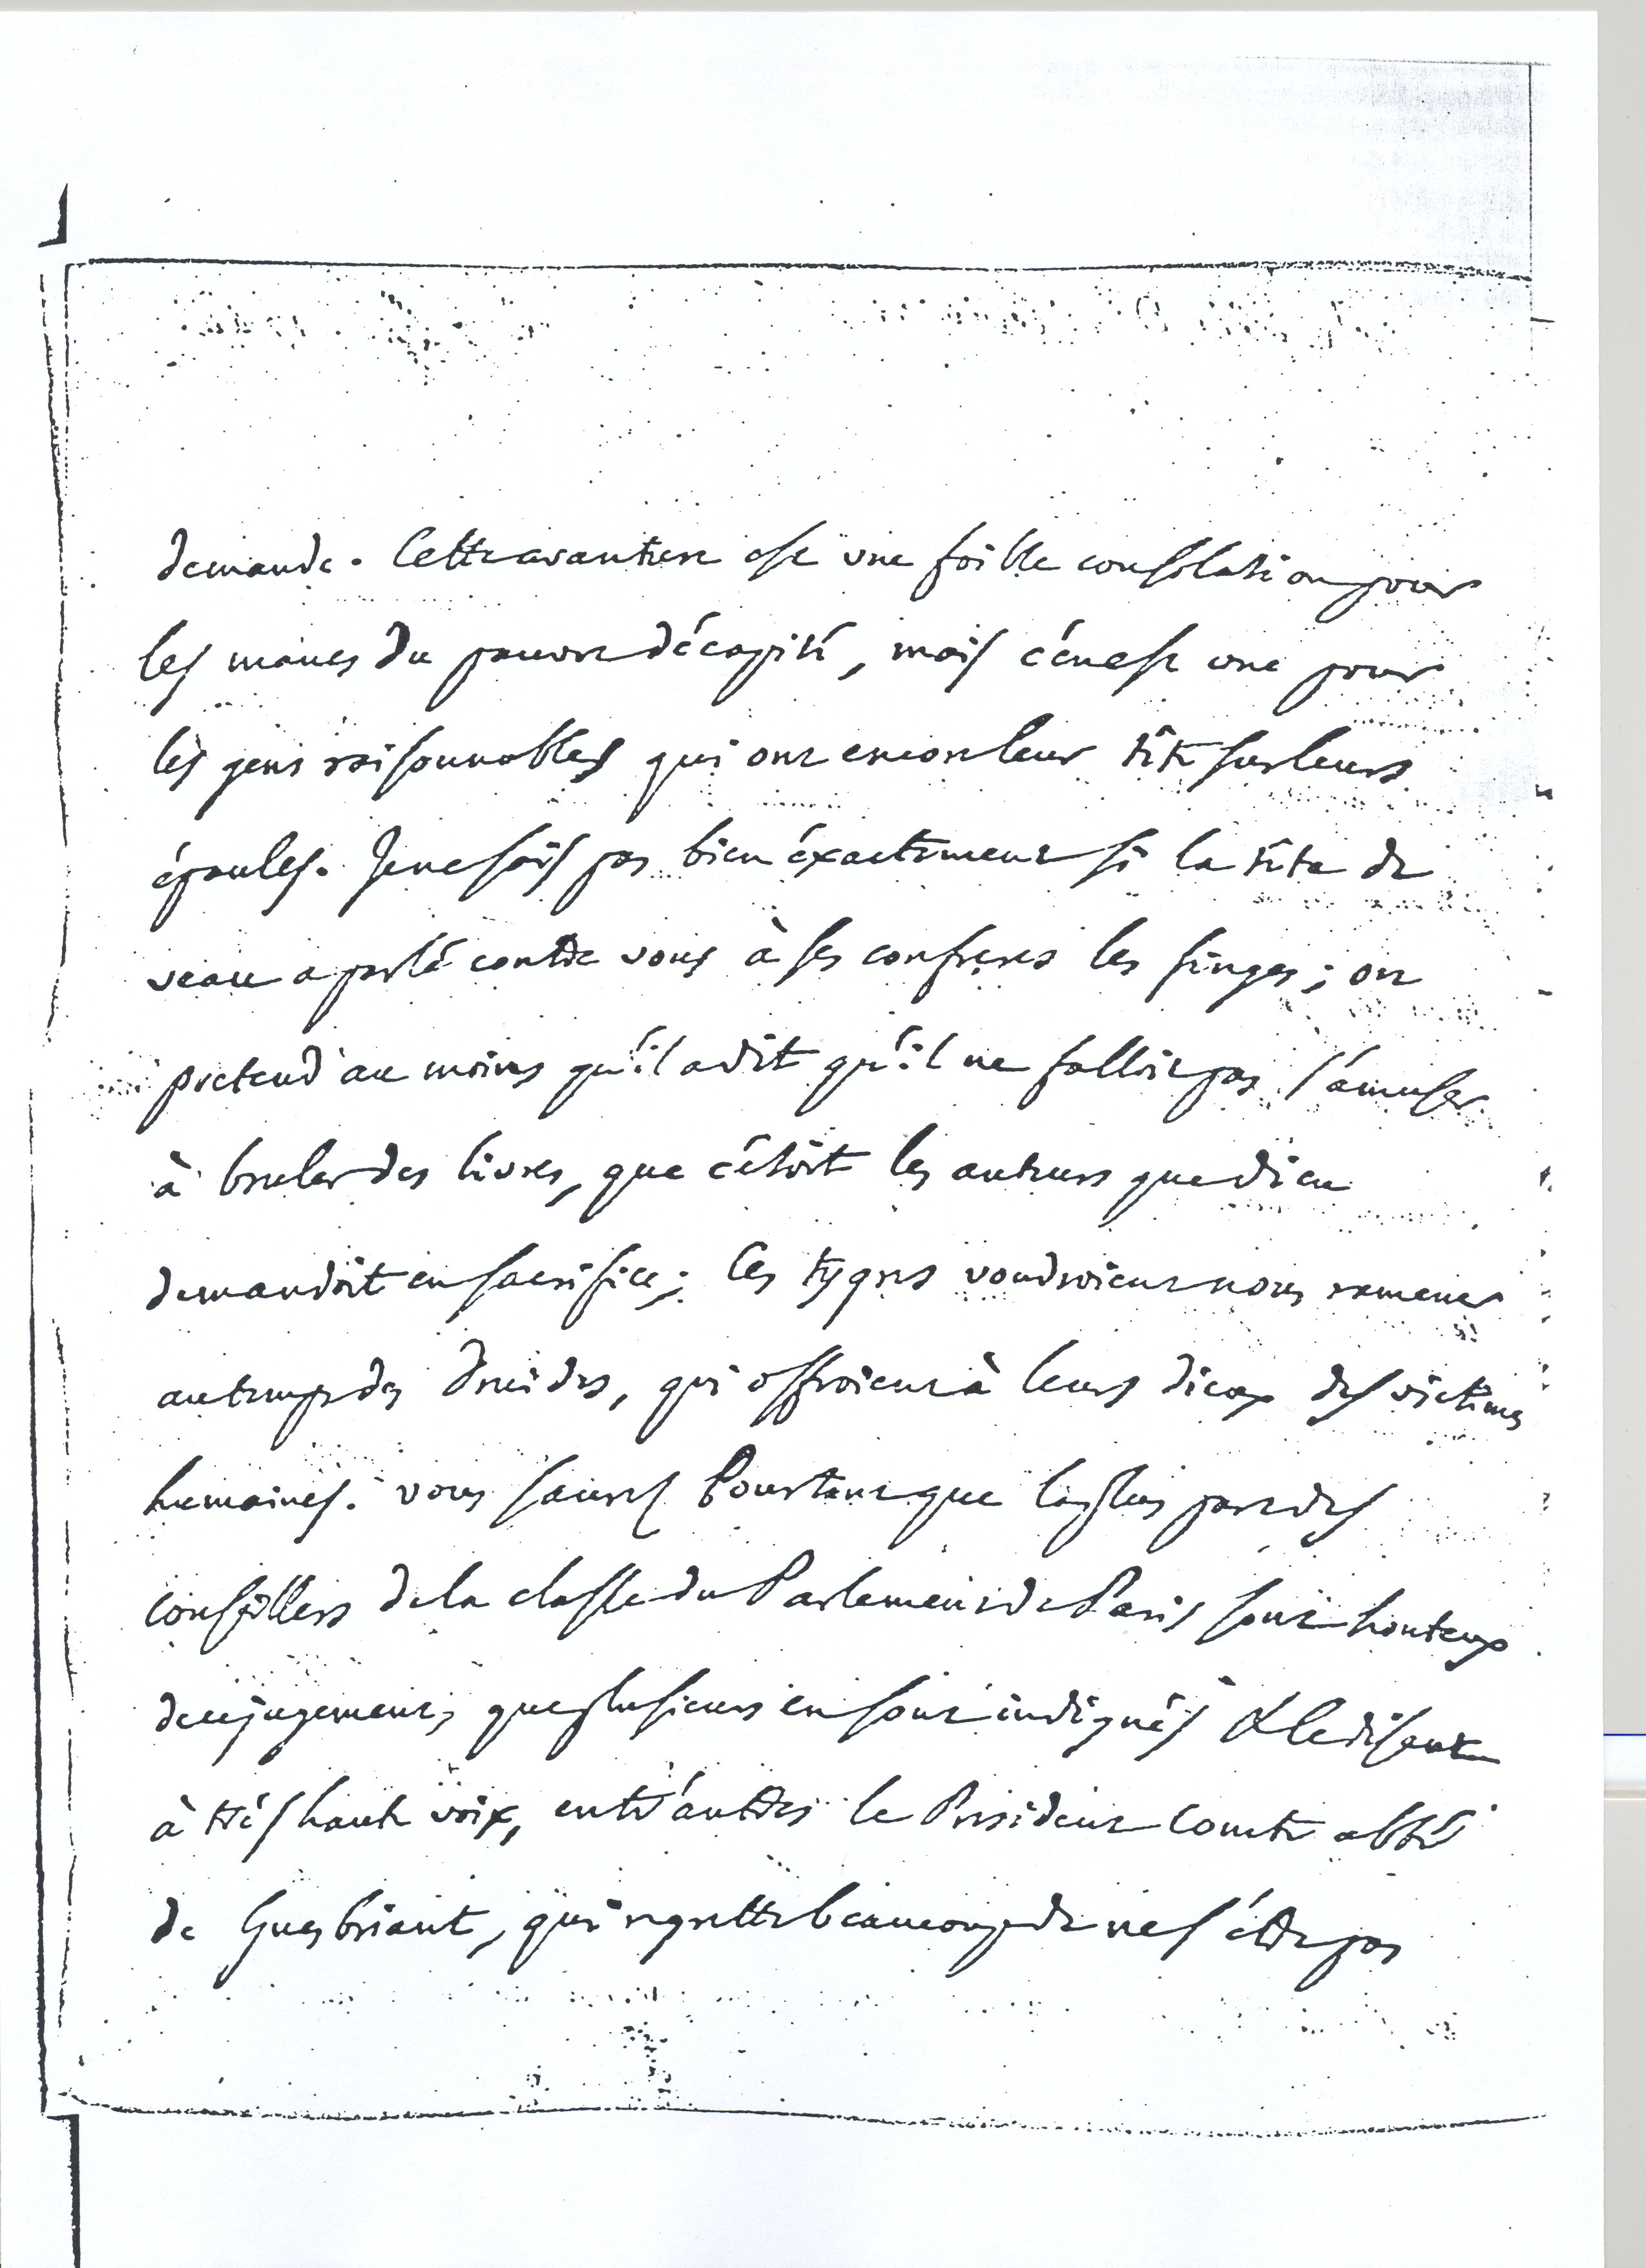 demande. Cette avanture est une foible consolation pour
les manes du pauvre décapité, mais c'en est une pour
les gens raisonnables qui ont encor leur tête sur leurs
épaules. Je ne sais pas bien éxactement si la tête de
veau a parlé contre vous à ses confreres les singes ; on
pretend au moins qu'il a dit qu'il ne falloit pas s'amuser
à bruler des livres, que c'étoit les auteurs que dieu
demandoit en sacrifice ; ces tygres voudroient nous ramener
au temps des druides, qui offroient à leurs dieux des victimes
humaines. vous saurez Pourtant que la plus part des
conseillers de la classe du Parlement de Paris sont honteux
de ce jugement, que plusieurs en sont indignés & le disent
à très haute voix, entr'autres le President Comte abbé
de Guesbriant, qui regrette beaucoup de ne s'être pas